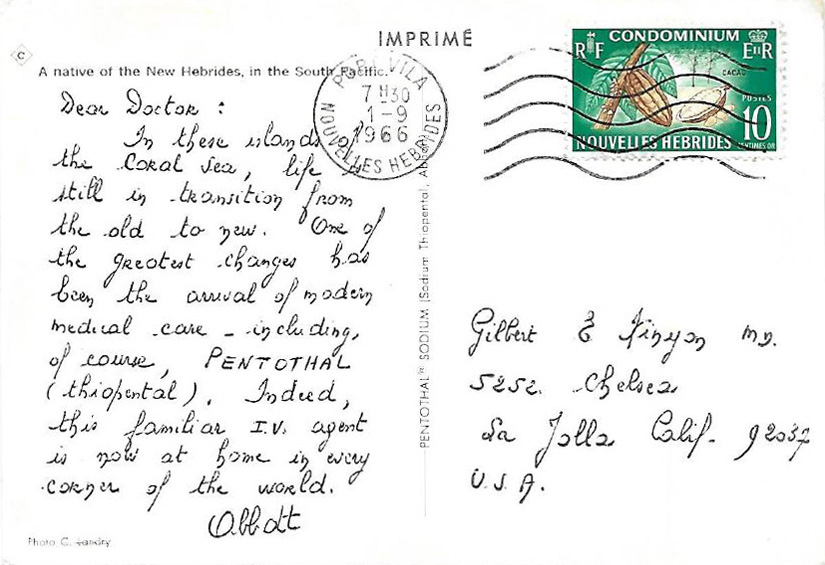 IMPRIMÉ
C
A native of the New Hebrides, in the South Pacific.
Dear Doctor :
In these islands of
the Coral Sea, life is
still in transition from
the old to new. One of
the greatest changes has
been the arrival of modern
medical care - including,
of course, PENTOTHAL
(thiopental). Indeed,
this familiar I.V. agent
is now at home in every
corner of the world.
Abbott
Photo C. Landry
PENTOTHAL SODIUM (Sodium Thiopental, Abbott)
PORT VILA
7H30
1-9
1966
NOUVELLES HEBRIDES
CONDOMINIUM
RF
EIIR
CACAO
POSTES
10
CENTIMES OR
NOUVELLES HEBRIDES
Gilbert E Kinyon MD.
5252 Chelsea
La Jolla Calif. 92037
U.S.A.